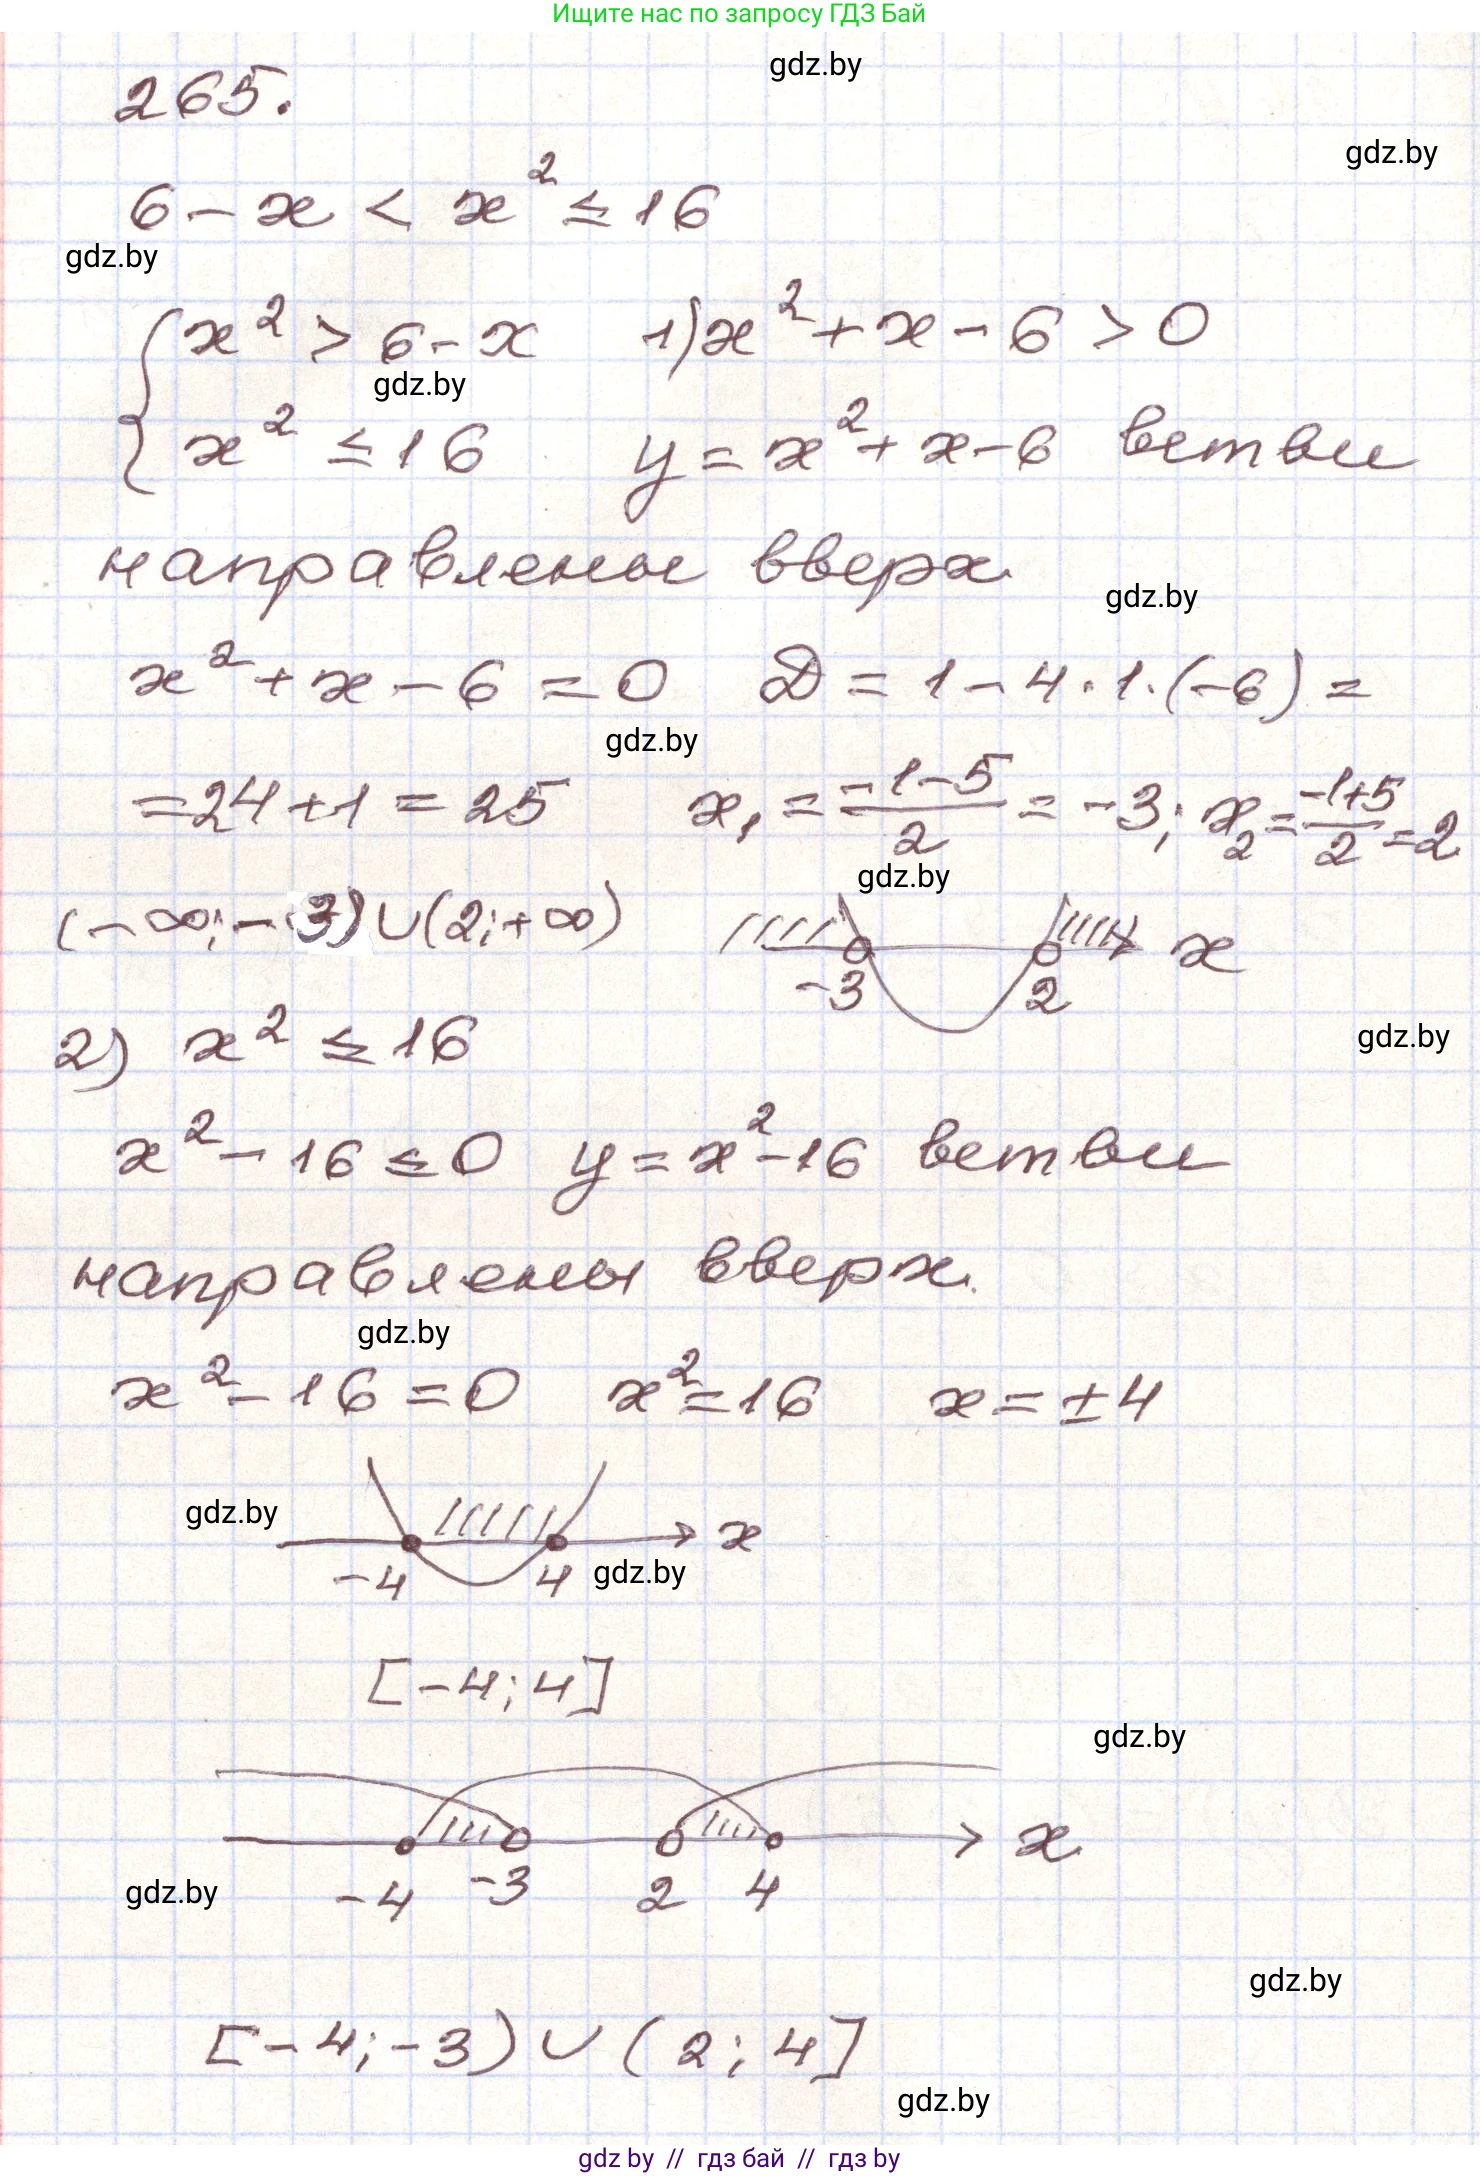 Ищите нас по запросу ГДЗ Бай
gdz.by
265.
gdz.by
6 - x < x² ≤ 16
gdz.by
{ x² > 6 - x 1) x² + x - 6 > 0
gdz.by
x² ≤ 16 y = x² + x - 6 ветви
направлены вверх.
gdz.by
x² + x - 6 = 0 D = 1 - 4 · 1 · (-6) =
gdz.by
= 24 + 1 = 25 x₁ = (-1-5)/2 = -3; x₂ = (-1+5)/2 = 2
gdz.by
(-∞; -3) ∪ (2; +∞) x
-3 2
gdz.by
2) x² ≤ 16
x² - 16 ≤ 0 y = x² - 16 ветви
направлены вверх.
gdz.by
x² - 16 = 0 x² = 16 x = ±4
gdz.by
x
-4 4
gdz.by
[-4; 4]
gdz.by
x
-4 -3 2 4
gdz.by
gdz.by
[-4; -3) ∪ (2; 4]
gdz.by
gdz by // гдз бай // gdz by